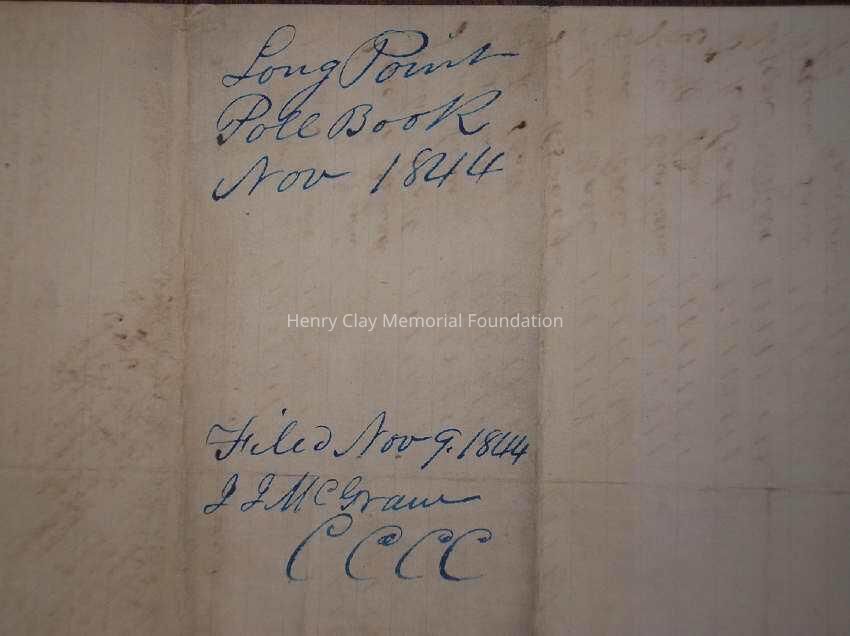 Long Point
Poll Book
Nov 1844
Henry Clay Memorial Foundation
Filed Nov 9. 1844
J J McGraw
C C C C